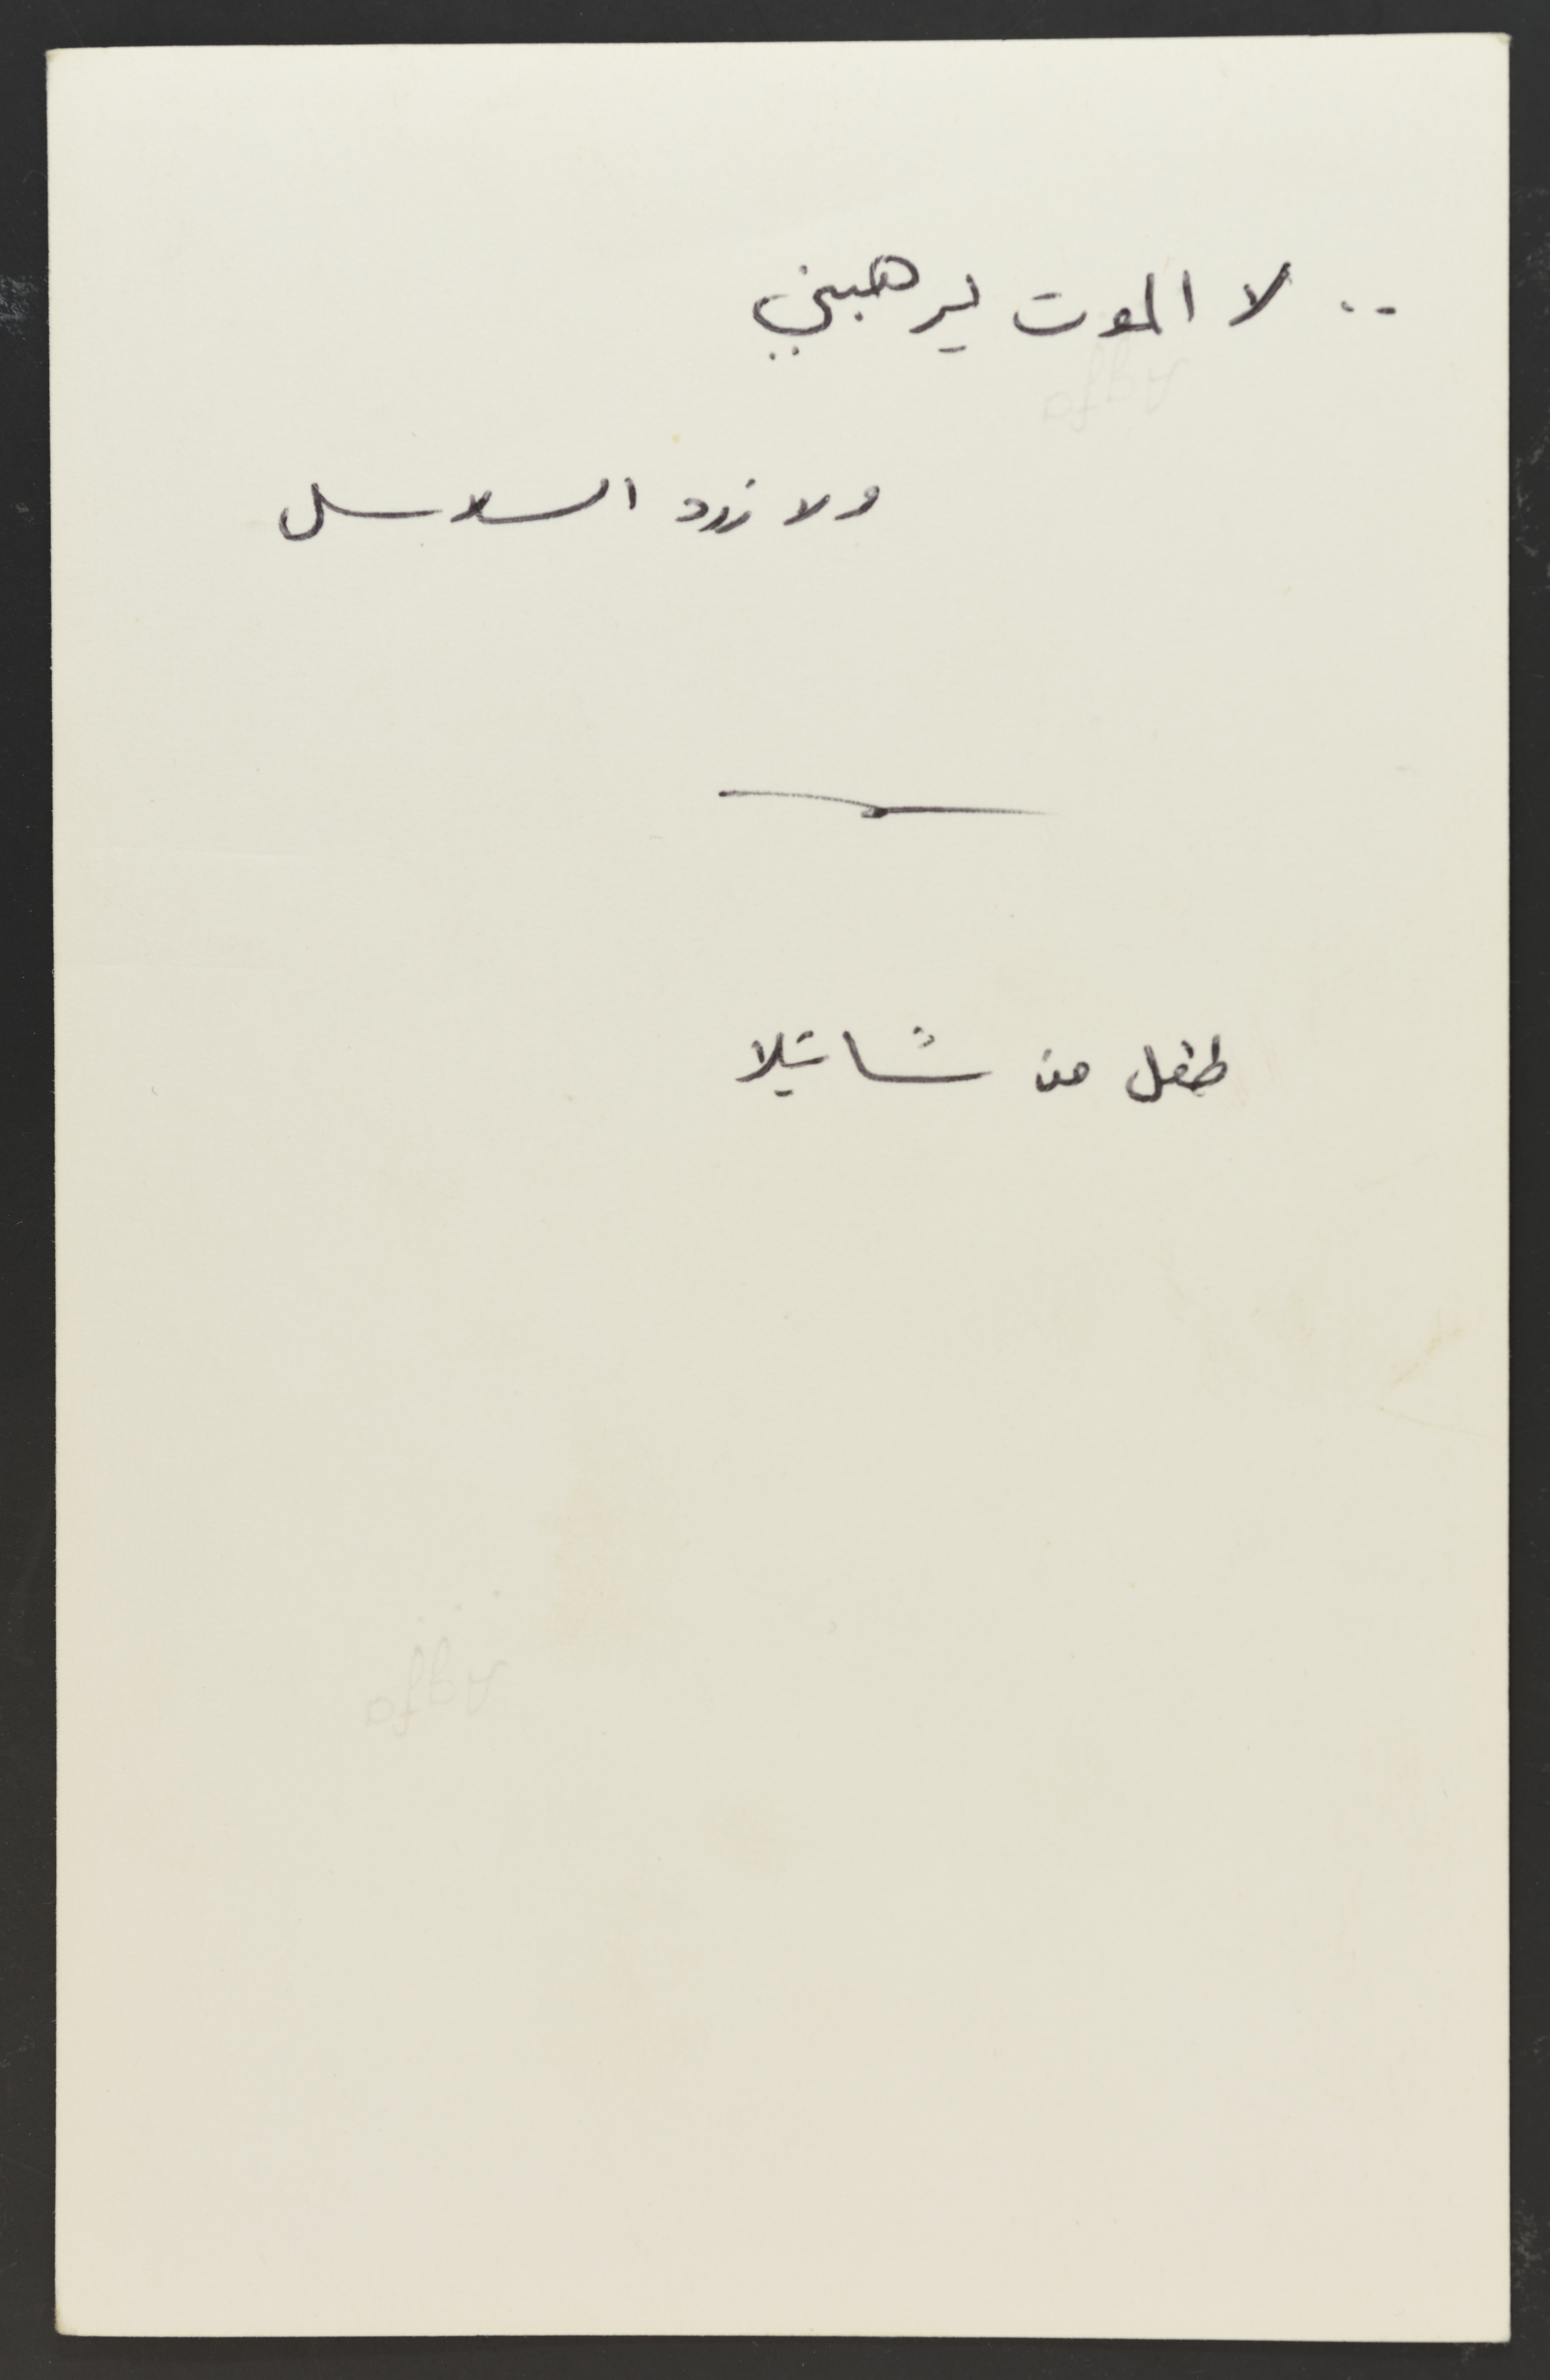 .. لا الموت يرهبني
ولا زرد السلاسل
طفل من شاتيلا
Agfa
Agfa